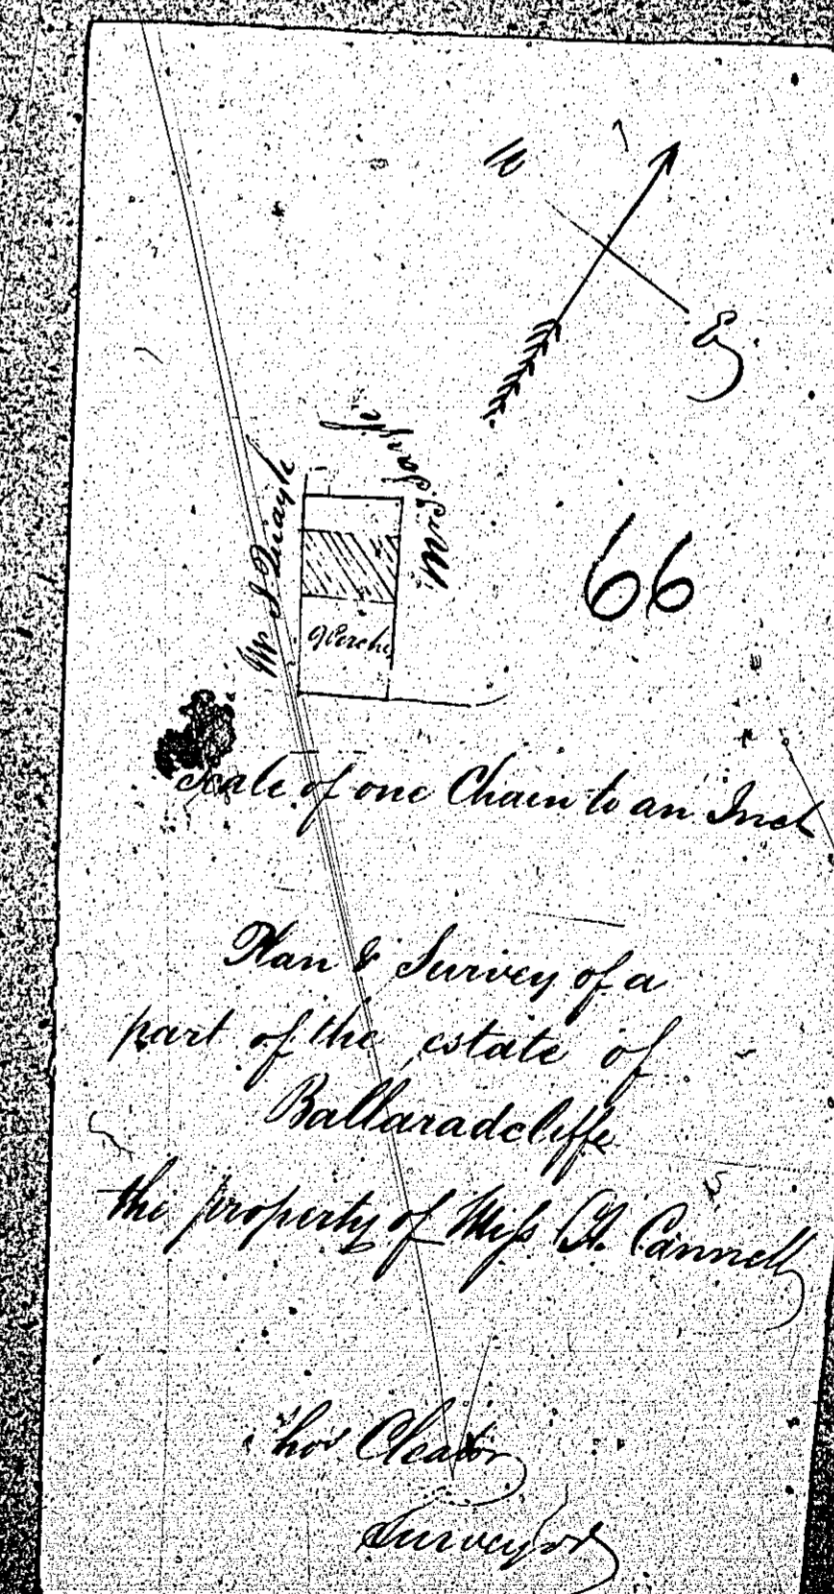 W
E
Mr J Quayle
Mrs Sayle
66
9 Perches
Scale of one Chain to an Inch
Plan & Survey of a
part of the estate of
Ballaradcliffe
the property of Miss A. Cannell
Thos Cleator
Surveyor